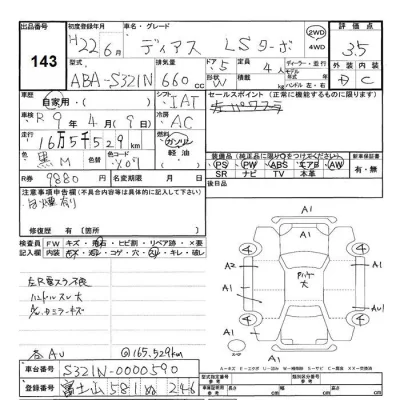 出品番号
143
初度登録年月
H22年6月
車名・グレード
ディアス LSターボ
2WD
4WD
評価点
3.5
型式
ABA-S321N
排気量
660cc
ドア
5
形状
W
定員
4人
ディーラー・並行
モデル年式
ハンドル 左・右
外装 内装
D C
車歴
自家用・( )
シフト
IAT
セールスポイント (正常に機能するものに限ります)
左パワスラ
車検
R9年4月(9日)
冷房
AC
走行
16万5千529km
燃料
ガソリン
軽油
色
黒M
色替
色No.
X07
R券
9880円
名義変更期限
月 日
装備品 (純正品に限り○をつけてください)
PS PW ABS エアB AW
SR ナビ TV 本革
新車保証書
有・無
後日品
注意事項申告欄 (不具合内容等は具体的に記入して下さい)
日焼有り
修復歴 有 [箇所 ]
検査員記入欄
FW キズ・飛石・ヒビ割・リペア跡・×要
内装 キズ・汚レ・コゲ・穴・スレ・キレ・破レ
左R電スラ不良
ハンドルスレ大
A1
A1
4
4
A2
A1
A1
A1
A1
4
4
A1
スペア
@165,529km
A=キズ E=エクボ U=凹ミ W=補修跡 S=サビ C=腐食 X=要交換 XX=交換済
車台番号
S321N-0000590
登録番号
富士山 581 ぬ 246